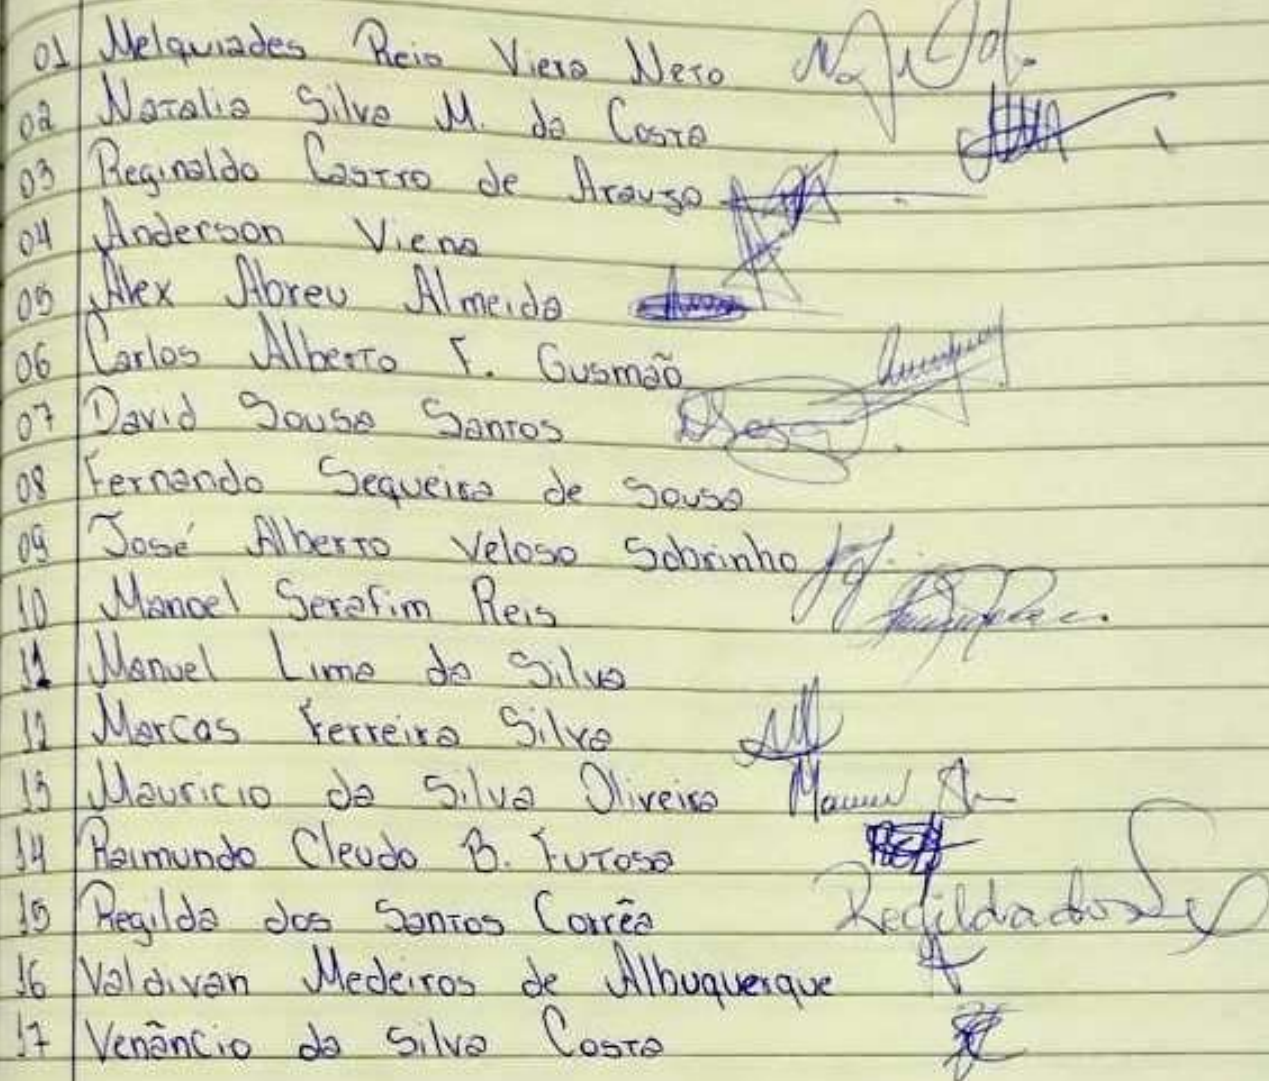 01 Melquiades Reis Viera Neto
02 Natalia Silva M. da Costa
03 Reginaldo Castro de Araujo
04 Anderson Viena
05 Alex Abreu Almeida
06 Carlos Alberto F. Gusmão
07 David Sousa Santos
08 Fernando Sequeira de Sousa
09 José Alberto Veloso Sobrinho
10 Manoel Serafim Reis
11 Manuel Lima da Silva
12 Marcos Ferreira Silva
13 Mauricio da Silva Oliveira
14 Raimundo Cleudo B. Furtosa
15 Regilda dos Santos Corrêa Regilda dos
16 Valdivan Medeiros de Albuquerque
17 Venâncio da Silva Costa